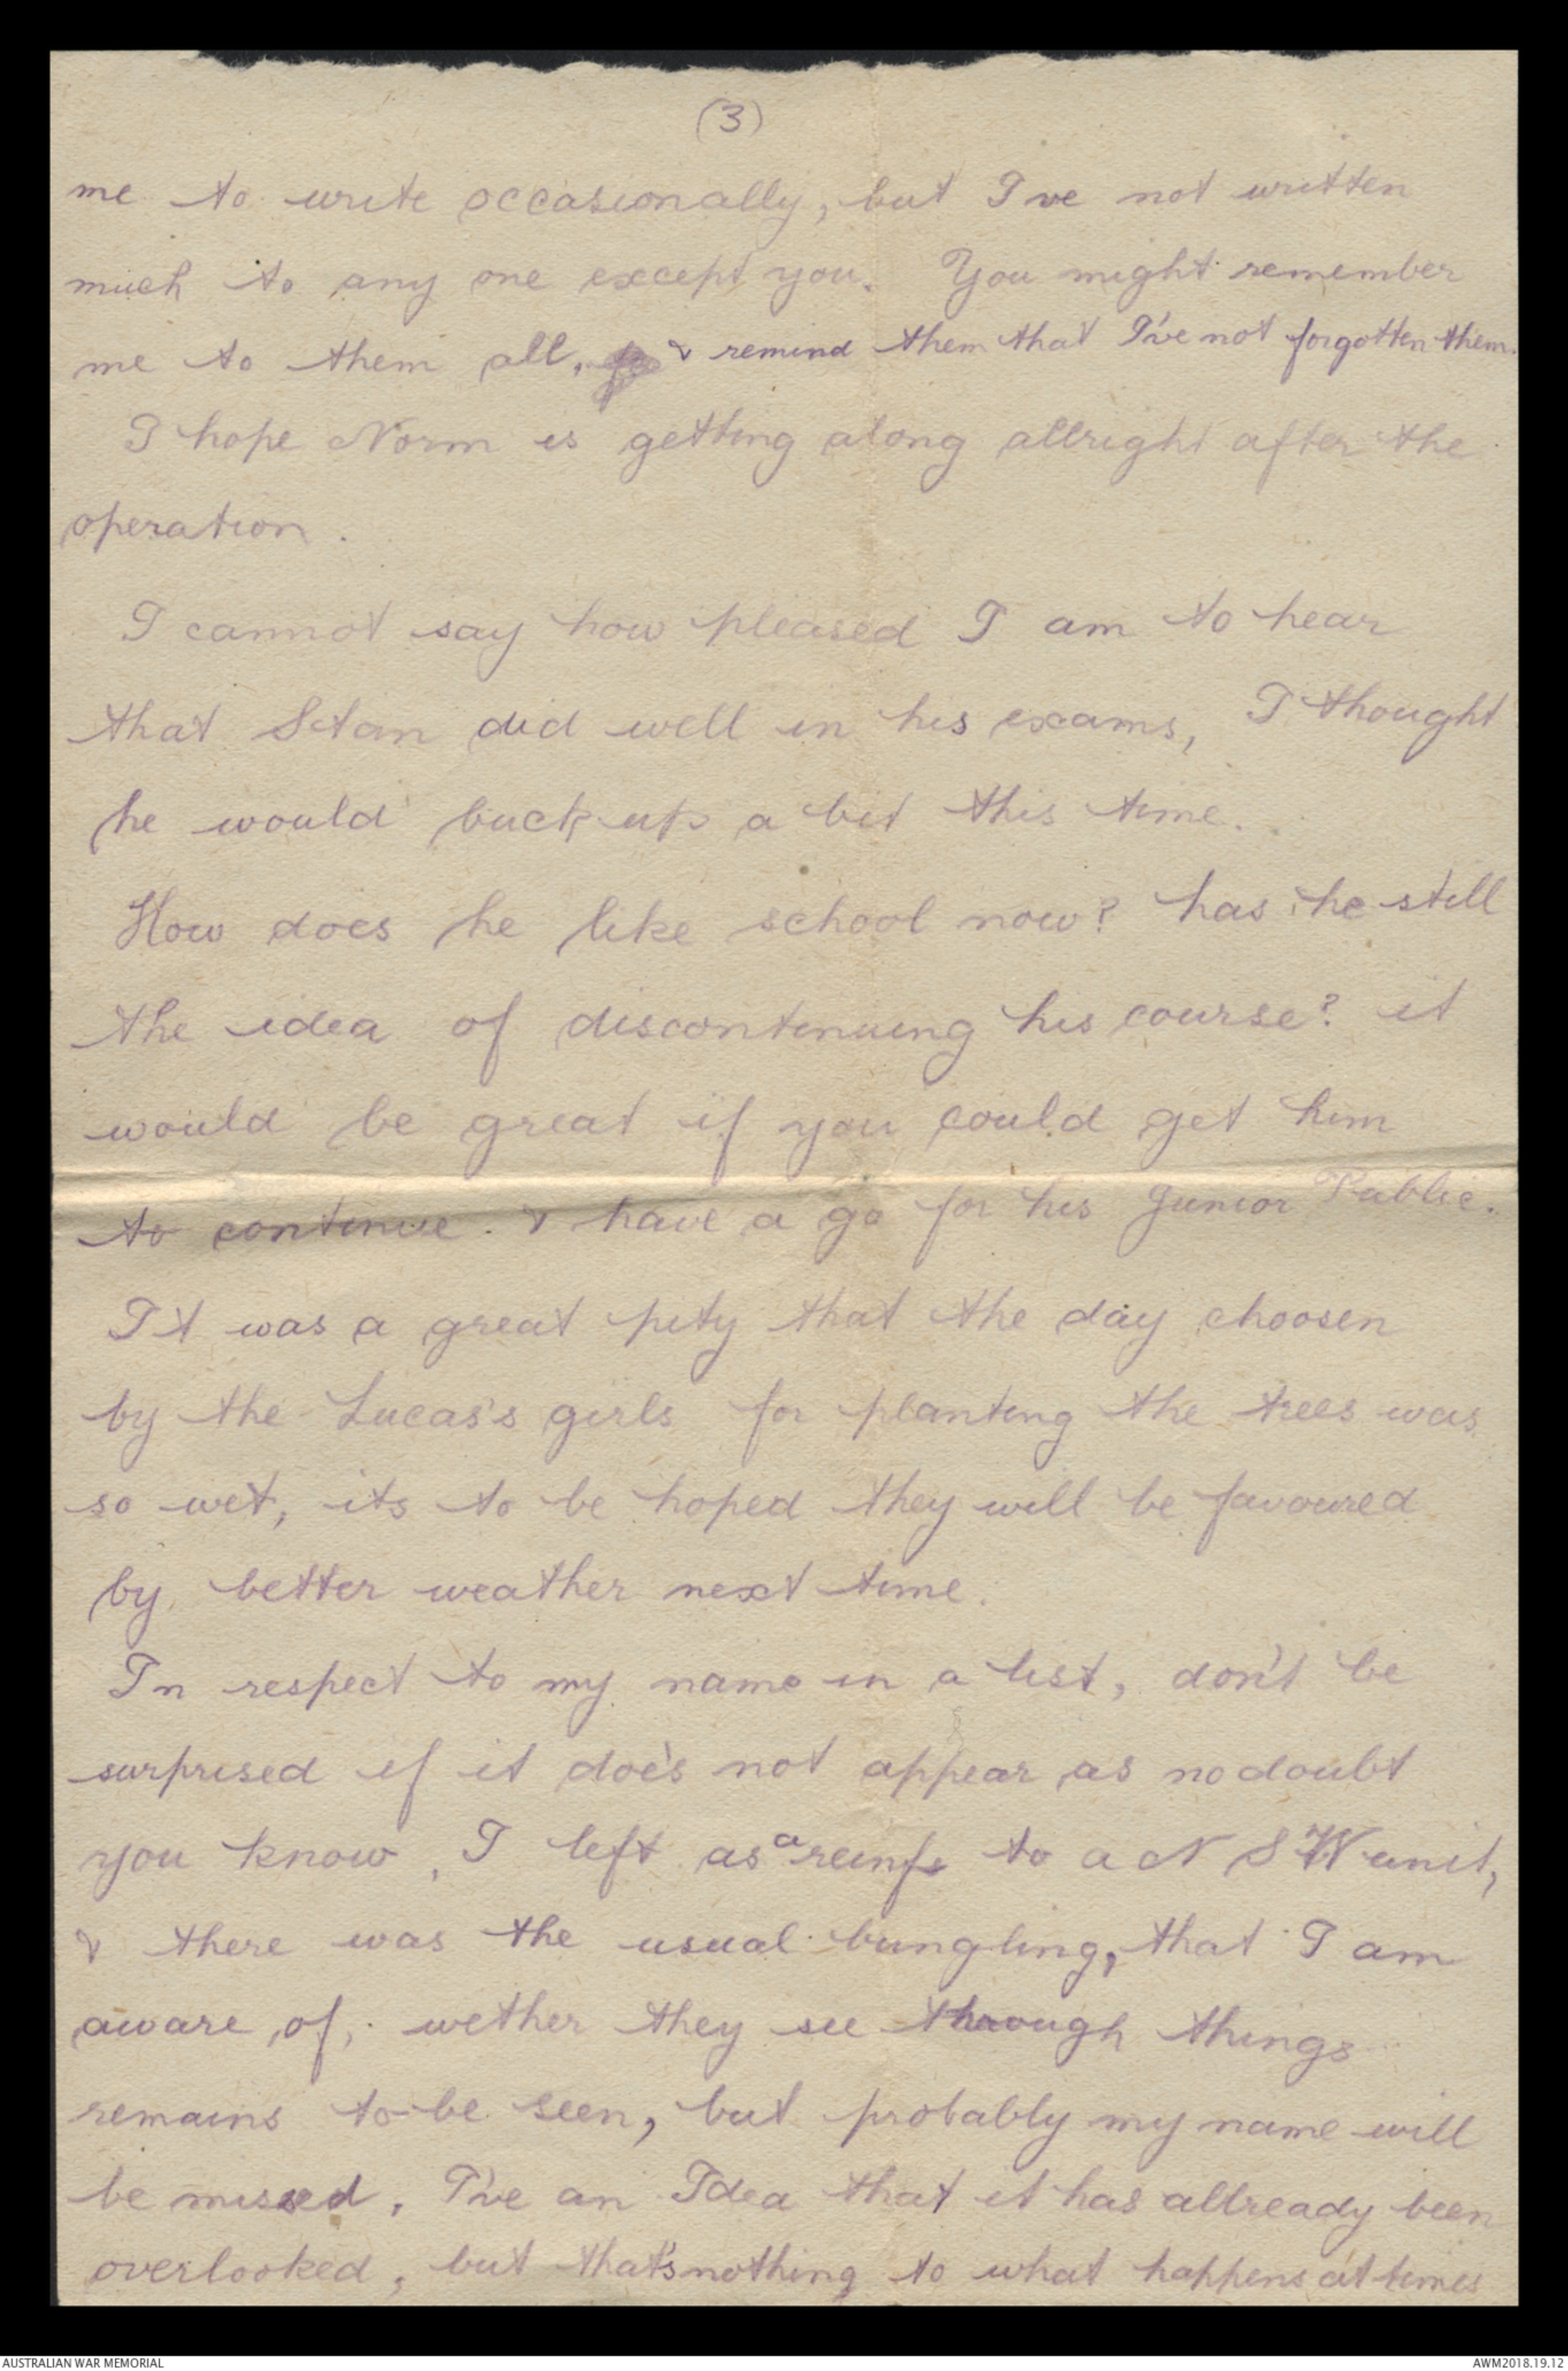 (3)
me to write occasionally, but I've not written
much to any one except you. You might remember
me to them all, & remind them that I've not forgotten them.
I hope Norm is getting along allright after the
operation.
I cannot say how pleased I am to hear
that Stan did well in his exams, I thought
he would buck up a bit this time.
How does he like school now? has he still
the idea of discontinuing his course? it
would be great if you could get him
to continue. & have a go for his Junior Public.
It was a great pity that the day choosen
by the Lucas's girls for planting the trees was
so wet, its to be hoped they will be favoured
by better weather next time.
In respect to my name in a list, don't be
surprised if it does not appear as no doubt
you know, I left as a reinfs to a N S W unit,
& there was the usual bungling, that I am
aware of, wether they see through things
remains to be seen, but probably my name will
be missed, I've an Idea that it has allready been
overlooked, but that's nothing to what happens at times
AUSTRALIAN WAR MEMORIAL
AWM2018.19.12